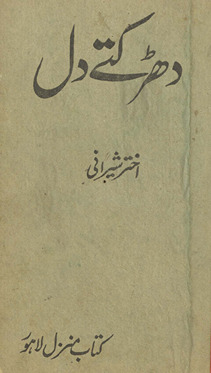 دھڑکتے دل
اختر شیرانی
کتاب منزل لاہور